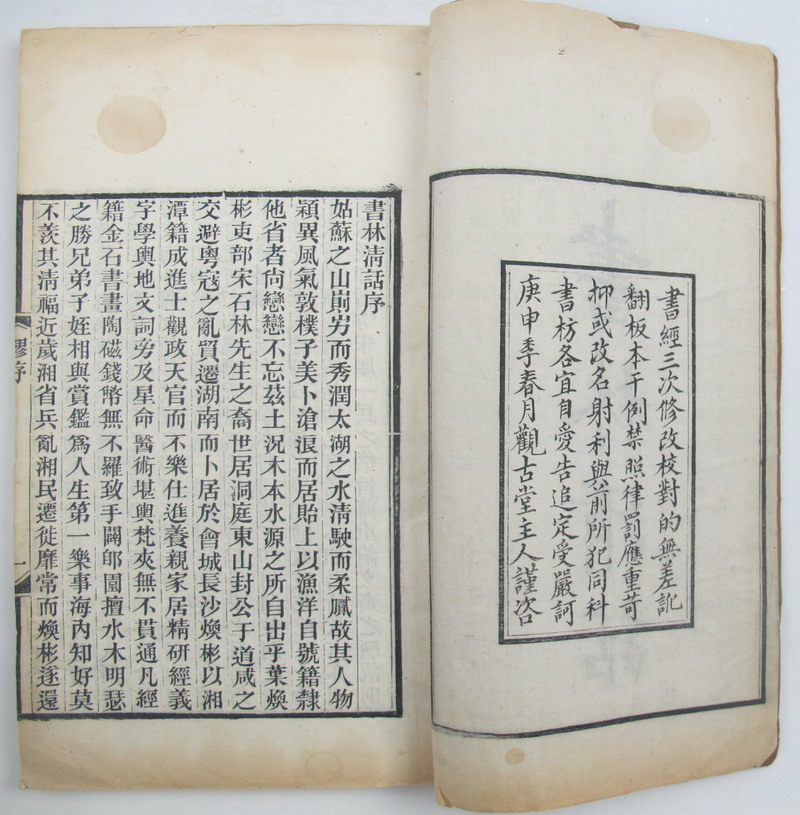 書經三次修改校對的無差訛
翻板本干例禁照律罰應重苛
抑或改名射利與前所犯同科
書枋各宜自愛告追定受嚴訶
庚申季春月觀古堂主人謹咨
書林清話序
姑蘇之山崱屴而秀潤太湖之水清駛而柔膩故其人物
穎異風氣敦樸子美卜滄浪而居貽上以漁洋自號籍隸
他省者尙戀戀不忘茲土況木本水源之所自出乎葉煥
彬吏部宋石林先生之裔世居洞庭東山封公于道咸之
交避粵寇之亂貿遷湖南而卜居於會城長沙煥彬以湘
潭籍成進士觀政天官而不樂仕進養親家居精研經義
字學輿地文詞旁及星命醫術堪輿梵夾無不貫通凡經
籍金石書畫陶磁錢幣無不羅致手闢郋園擅水木明瑟
之勝兄弟子姪相與賞鑑爲人生第一樂事海內知好莫
不羨其清福近歲湘省兵亂湘民遷徙靡常而煥彬遂還
繆序
一